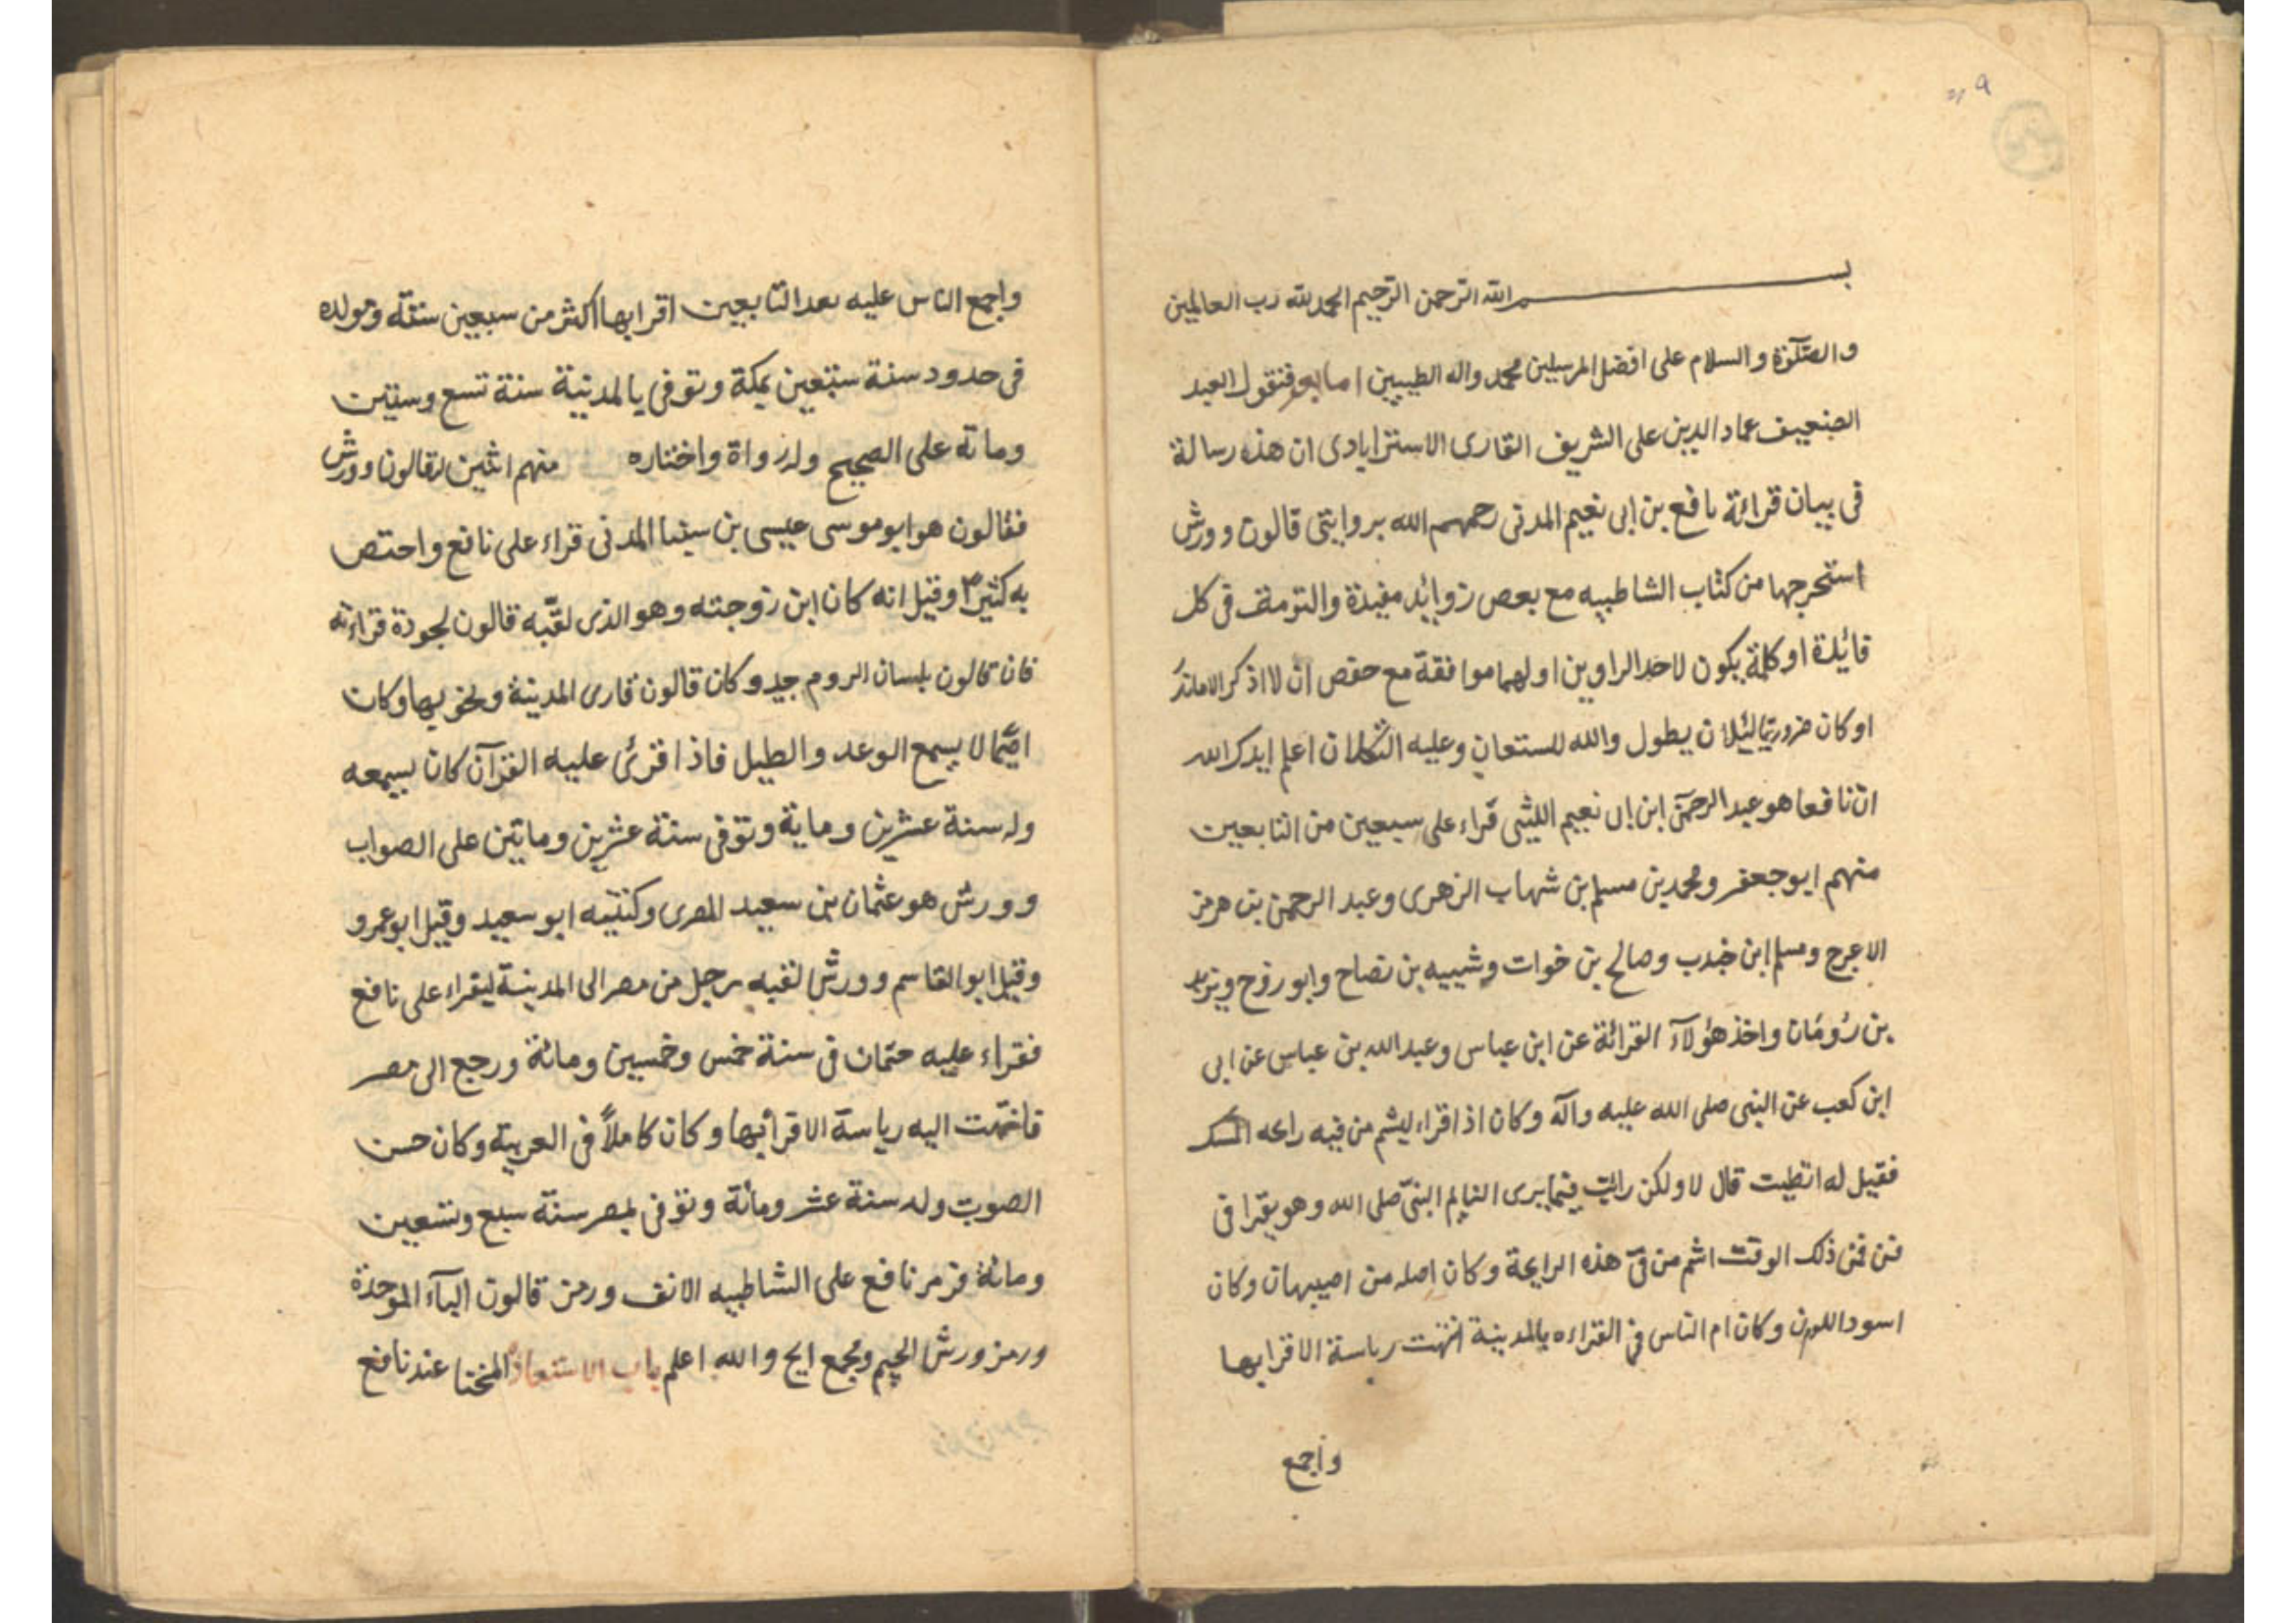 بسم الله الرحمن الرحيم الحمد لله رب العالمين
والصلوة والسلام على افضل المرسلين محمد واله الطيبين اما بعد فنقول العبد
الضعيف عماد الدين على الشريف القارى الاسترابادى ان هذه رسالة
فى بيان قرائة نافع بن ابى نعيم المدنى رحمهم الله بروايتى قالون وورش
استخرجها من كتاب الشاطبيه مع بعض زوايد مفيدة والتزمت فى كل
فائدة او كلمة يكون لاحد الراويين اولهما موافقة مع حفص ان لا اذكر الا ما ندر
او كان ضروريا لئلا ان يطول والله المستعان وعليه التكلان اعلم ايدك الله
ان نافعا هو عبد الرحمن ابن ابى نعيم الليثى قراء على سبعين من التابعين
منهم ابو جعفر ومحمد بن مسلم بن شهاب الزهرى وعبد الرحمن بن هرمز
الاعرج ومسلم ابن جندب وصالح بن خوات وشيبه بن نصاح وابو روح ويزيد
بن رومان واخذ هؤلاء القرائة عن ابن عباس وعبد الله بن عباس عن ابى
ابن كعب عن النبى صلى الله عليه وآله وكان اذا قراء ليشم من فيه رائحه المسك
فقيل له اتطيب قال لا ولكن رايت فيما يرى النايم النبى صلى الله وهو يقرا فى
فى فمن ذلك الوقت اشم من فى هذه الرايحة وكان اصله من اصبهان وكان
اسود اللون وكان ام الناس فى القراءه بالمدينة انتهت رياسة الاقرا بها
واجمع
واجمع الناس عليه بعد التابعين اقرا بها اكثر من سبعين سنة ومولده
فى حدود سنة سبعين بمكة وتوفى بالمدينة سنة تسع وستين
ومائه على الصحيح وله رواة واختاره منهم اثنين لقالون وورش
فقالون هو ابو موسى عيسى بن مينا المدنى قراء على نافع واختص
به كثيرا وقيل انه كان ابن زوجته وهو الذى لقبه قالون لجودة قراءته
فان قالون بلسان الروم جيد وكان قالون قارى المدينة ونحويها وكان
اصما لا يسمع الوعد والطبل فاذا قرئ عليه القرآن كان يسمعه
ولد سنة عشرين وماية وتوفى سنة عشرين وماتين على الصواب
وورش هو عثمان بن سعيد المصرى وكنيته ابو سعيد وقيل ابو عمرو
وقيل ابو القاسم وورش لقبه رجل من مصر الى المدينة ليقراء على نافع
فقراء عليه ختمات فى سنة خمس وخمسين ومائة ورجع الى مصر
فانتهت اليه رياسة الاقراء بها وكان كاملا فى العربية وكان حسن
الصوت ولد سنة عشر ومائة وتوفى بمصر سنة سبع وتسعين
ومائة فرمز نافع على الشاطبيه الالف ورمز قالون الباء الموحدة
ورمز ورش الجيم ومجمع ابج والله اعلم باب الاستعاذة المختا عند نافع